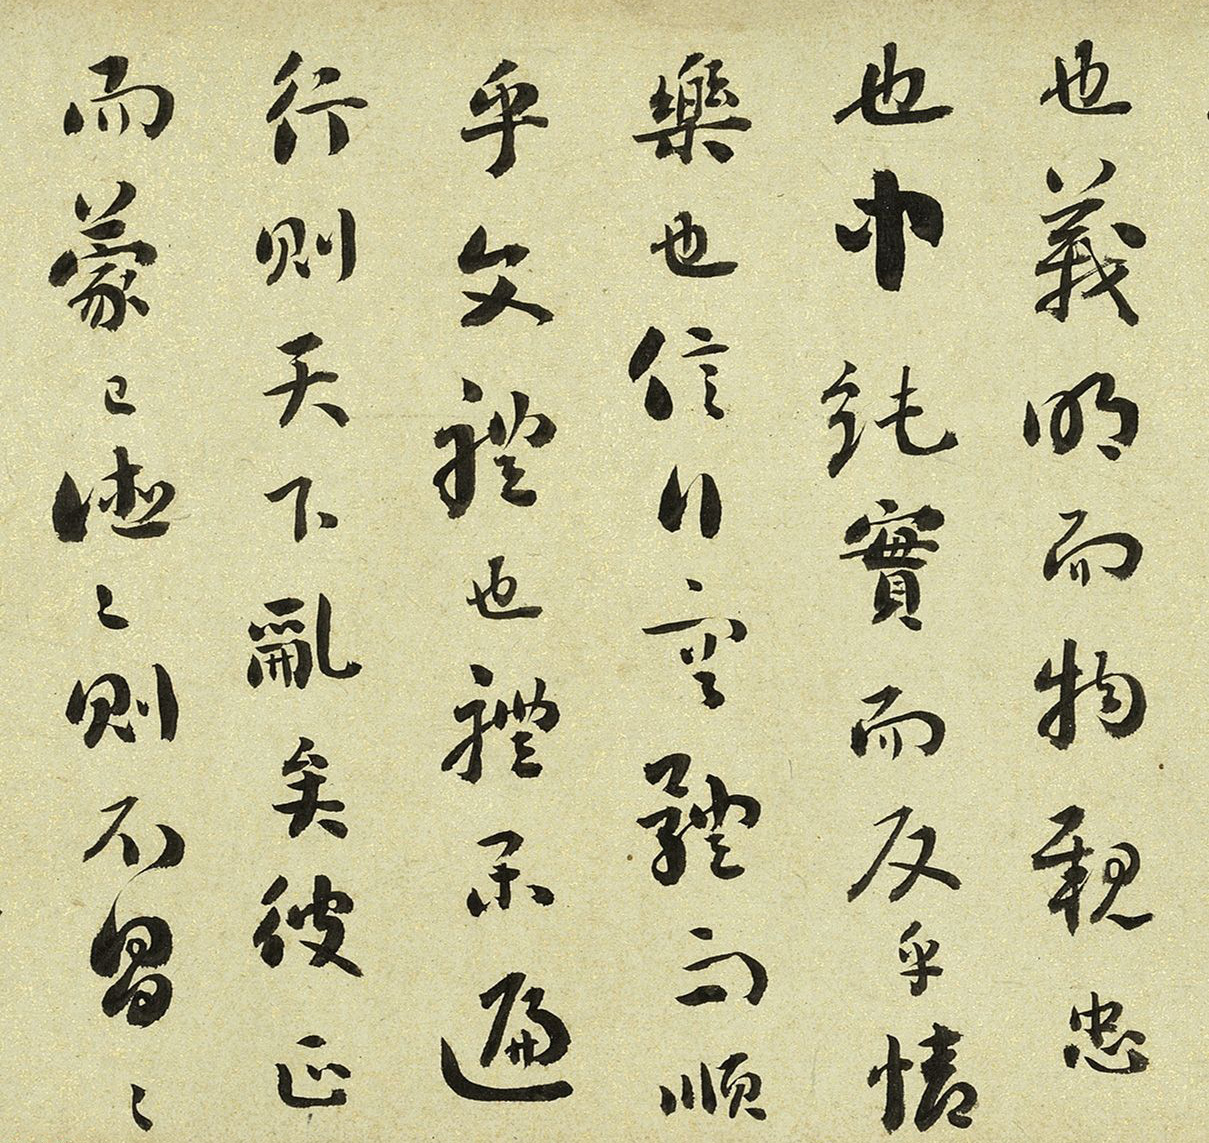 也義明而物親忠
也中純實而反乎情
樂也信行容體而順
乎文禮也禮樂遍
行則天下亂矣彼正
而蒙己德〻則不冒〻